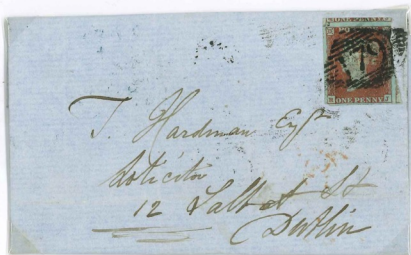 ONE PENNY
T. Hardman Esqr
Solicitor
12 Talbot St
Dublin